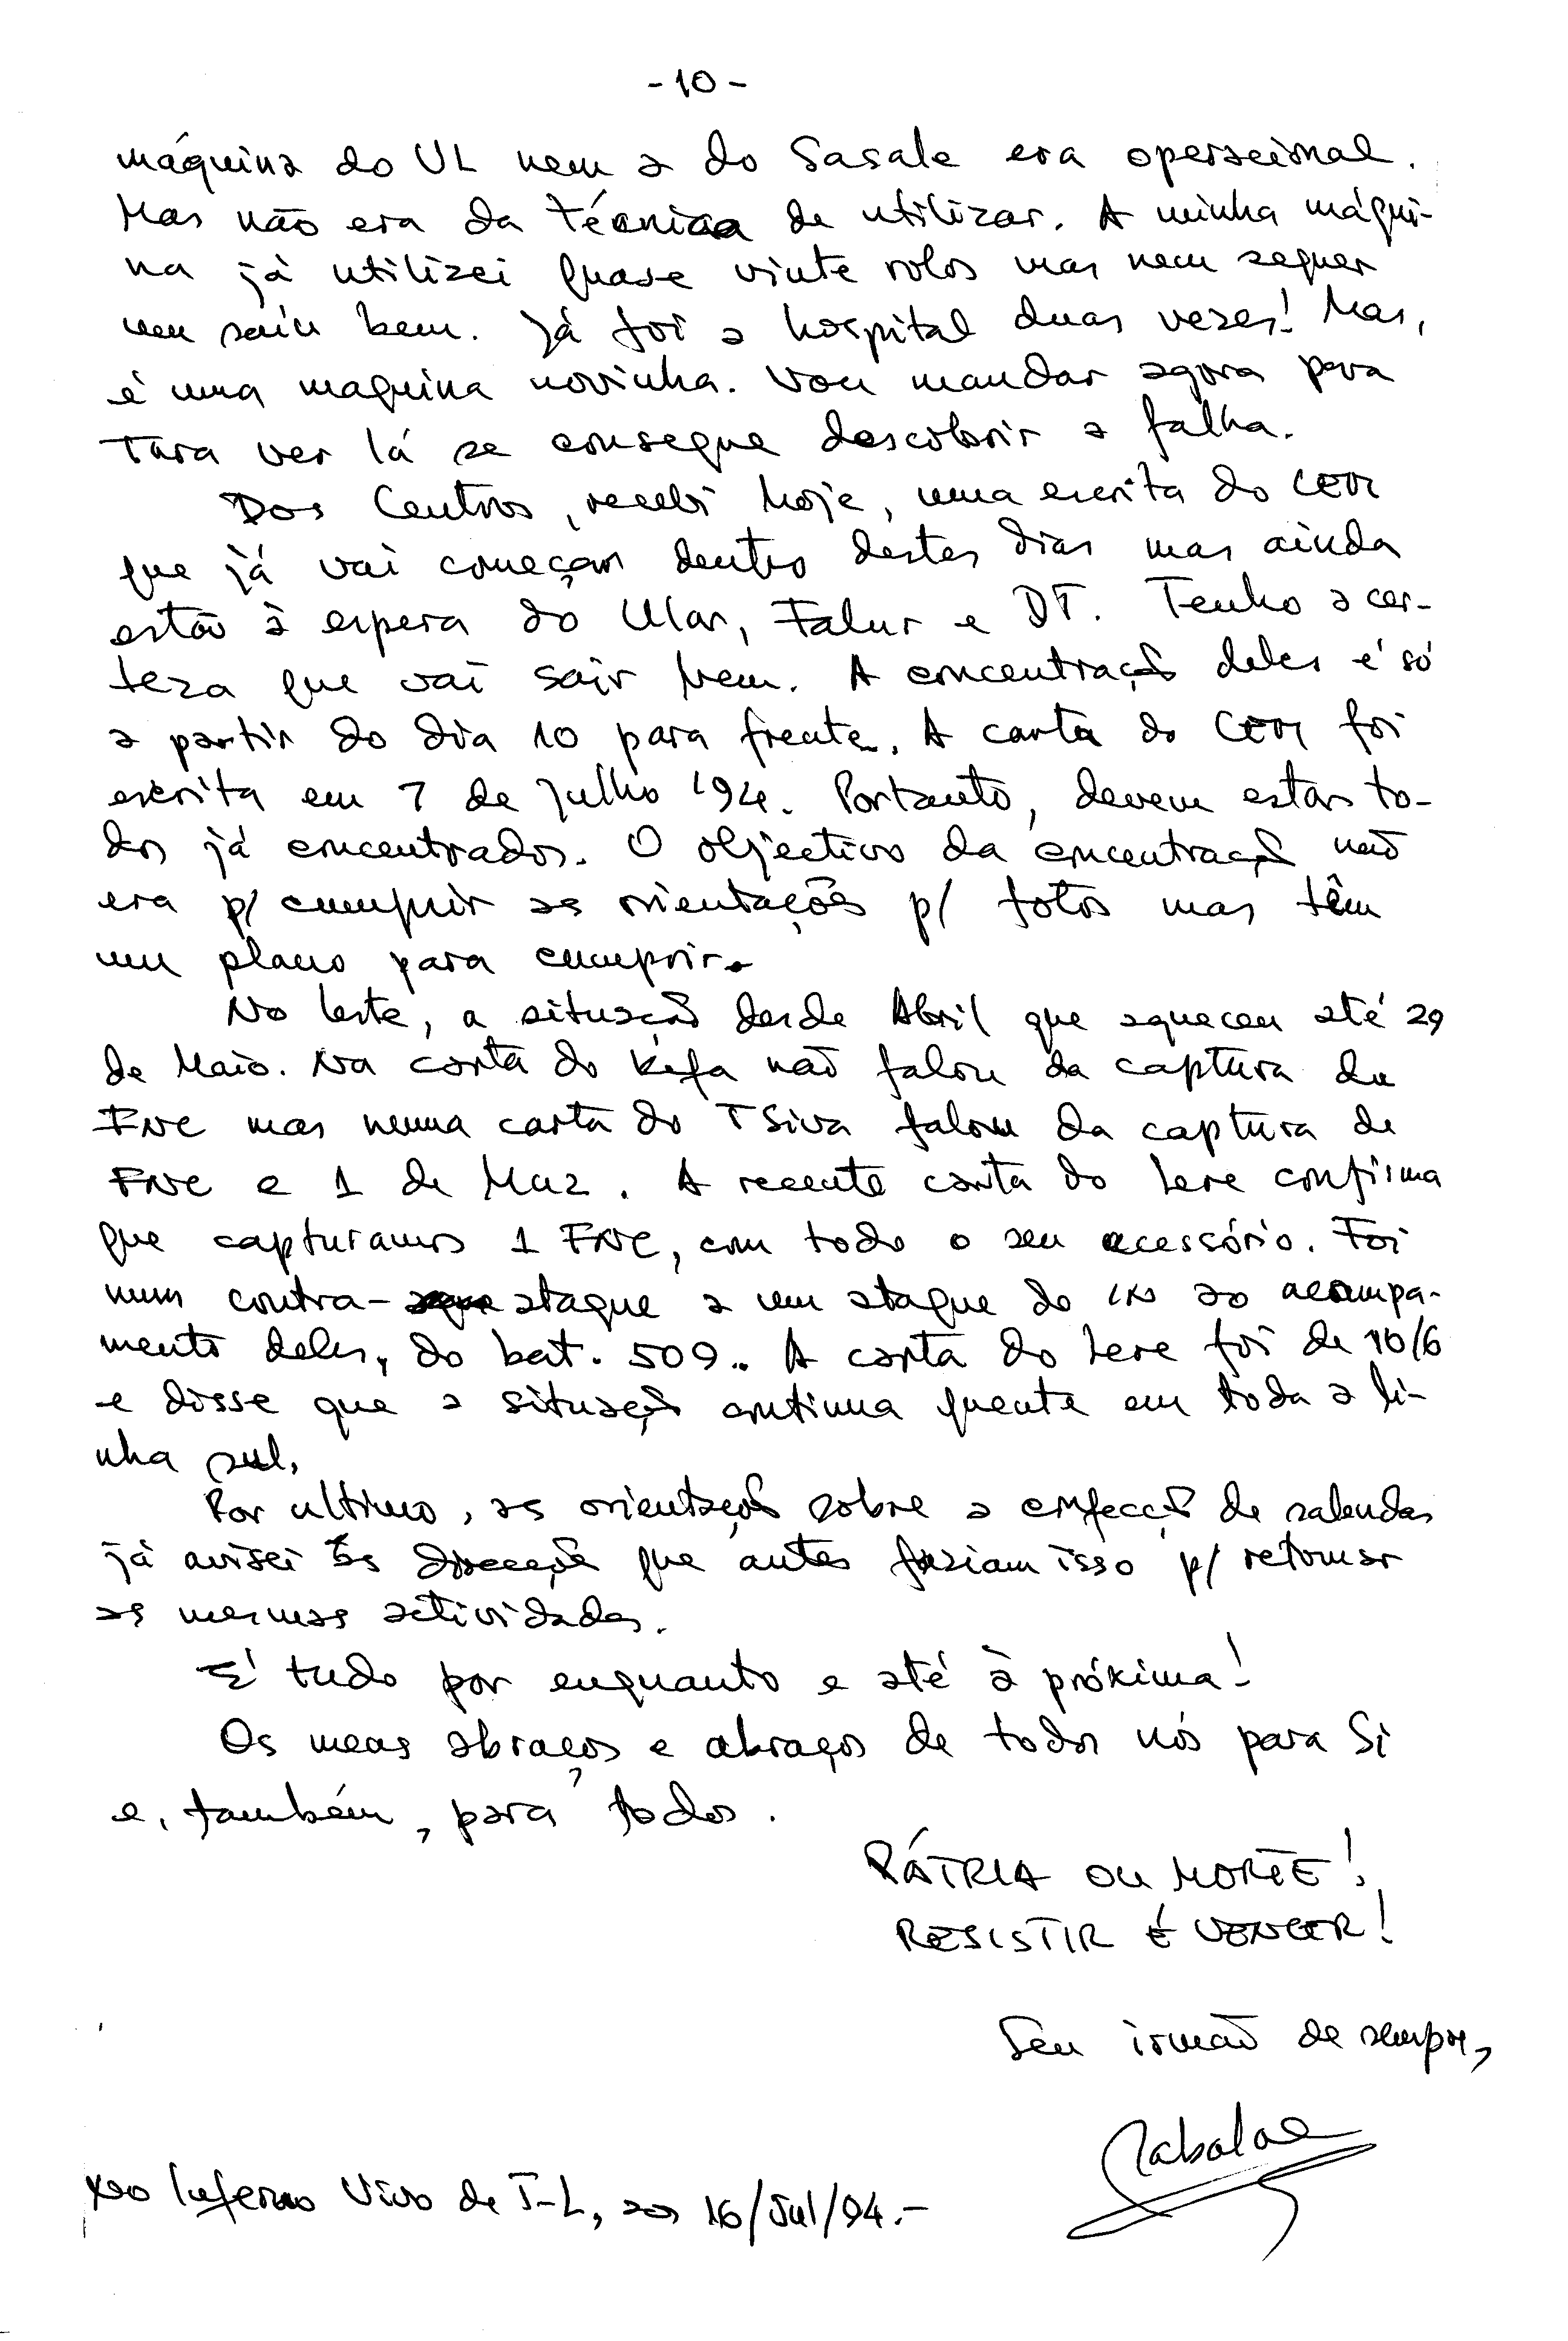 - 10 -
máquina do UL nem a do Sasale era operacional.
Mas não era da técnica de utilizar. A minha máqui-
na já utilizei quase vinte rolos mas nem sequer
um saíu bem. Já foi a hospital duas vezes! Mas,
é uma maquina novinha. Vou mandar agora para
Tara ver lá se consegue descobrir a falha.
Dos Centros, recebi hoje, uma escrita do
que já vai começar dentro destes dias mas ainda
estão à espera do Ular, Falur e DT. Tenho a cer-
teza que vai sair bem. A concentração deles é só
a partir do dia 10 para frente. A carta do foi
escrita em 7 de Julho '94. Portanto, devem estar to-
dos já concentrados. O objectivo da concentração não
era p/ cumprir as orientações p/ fotos mas têm
um plano para cumprir.
No leste, a situação desde Abril que aqueceu até 29
de Maio. Na carta do Kefa não falou da captura da
FNC mas numa carta do TSiva falou da captura de
FNC e 1 de Muz. A recente carta do Lere confirma
que capturamos 1 FNC, com todo o seu acessório. Foi
num contra-ataque a um ataque do IN ao acampa-
mento deles, do bat. 509. A carta do Lere foi de 10/6
e disse que a situação continua quente em toda a li-
nha sul.
Por ultimo, as orientação sobre a confecção de salendas
já avisei às direcção que antes faziam isso p/ retomar
as mesmas actividades.
É tudo por enquanto e até à próxima!
Os meus abraços e abraços de todos nós para Si
e, também, para todos.
PÁTRIA OU MORTE!
RESISTIR É VENCER!
Seu irmão de sempre,
Inferno Vivo de T-L, aos 16/Jul/94.-